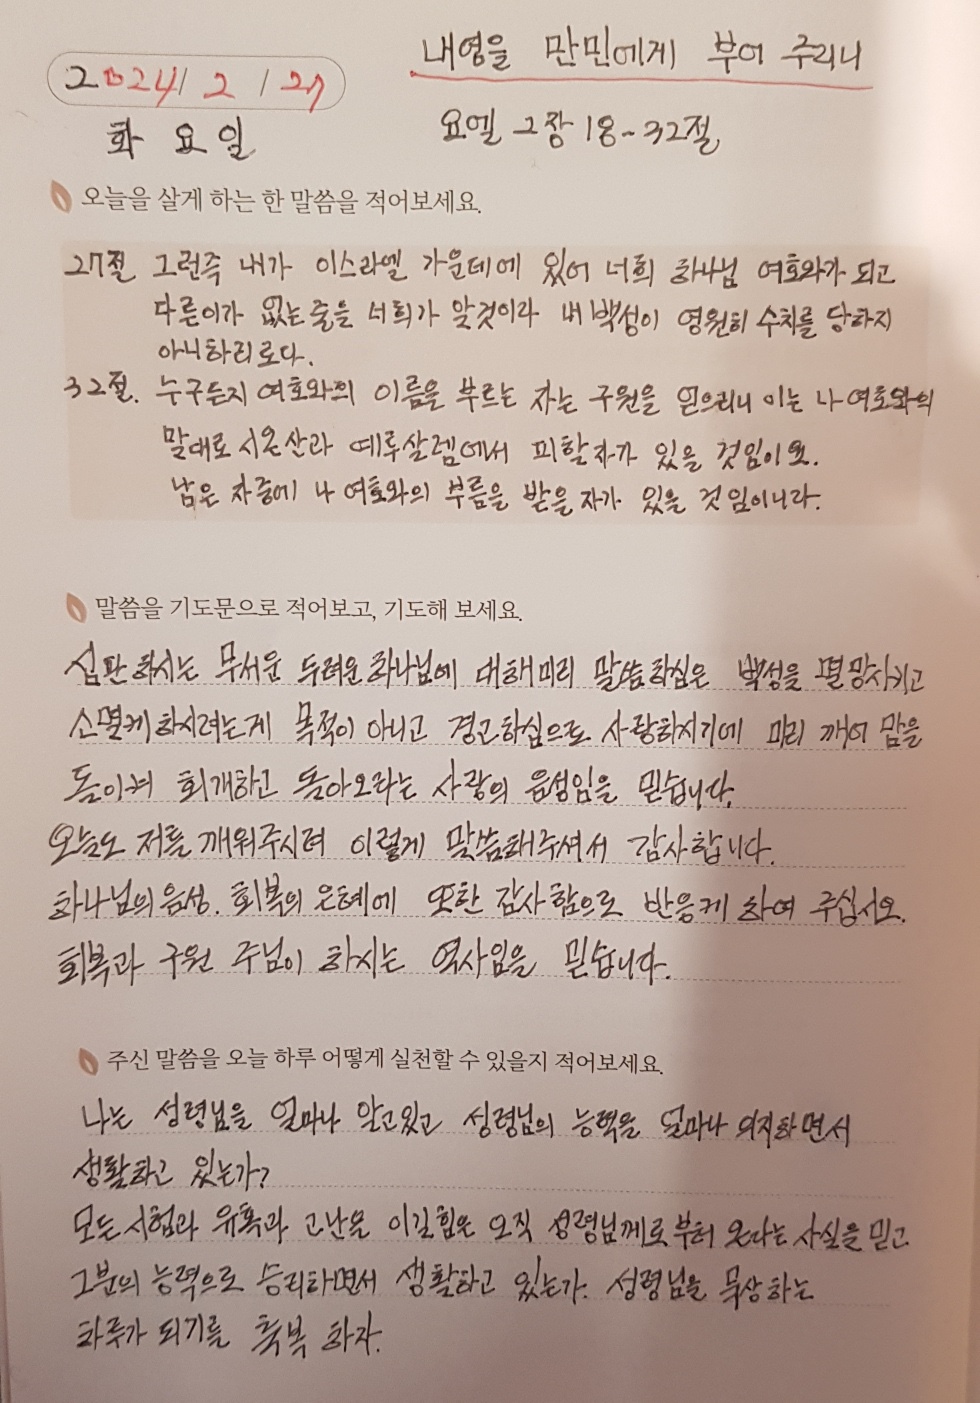 내영을 만민에게 부어 주리니
2024 / 2 / 27
화 요 일
요엘 2장 18~32절
오늘을 살게 하는 한 말씀을 적어보세요.
27절 그런즉 내가 이스라엘 가운데에 있어 너희 하나님 여호와가 되고
다른이가 없는줄을 너희가 알것이라 내 백성이 영원히 수치를 당하지
아니하리로다.
32절. 누구든지 여호와의 이름을 부르는 자는 구원을 얻으리니 이는 나 여호와의
말대로 시온산과 예루살렘에서 피할자가 있을 것임이요.
남은 자중에 나 여호와의 부름을 받을 자가 있을 것임이니라.
말씀을 기도문으로 적어보고, 기도해 보세요.
심판하시는 무서운 두려운 하나님에 대해 미리 말씀하심은 백성을 멸망시키고
소멸케 하시려는게 목적이 아니고 경고하심으로 사랑하시기에 미리 깨어 맘을
돌이켜 회개하고 돌아오라는 사랑의 음성임을 믿습니다.
오늘도 저를 깨워주시려 이렇게 말씀해주셔서 감사합니다.
하나님의 음성. 회복의 은혜에 또한 감사함으로 반응케 하여 주십시오.
회복과 구원 주님이 하시는 역사임을 믿습니다.
주신 말씀을 오늘 하루 어떻게 실천할 수 있을지 적어보세요.
나는 성령님을 얼마나 알고있고 성령님의 능력을 얼마나 의지하면서
생활하고 있는가?
모든 시험과 유혹과 고난을 이길힘은 오직 성령님께로 부터 온다는 사실을 믿고
그분의 능력으로 승리하면서 생활하고 있는가. 성령님을 묵상하는
하루가 되기를 축복 하자.